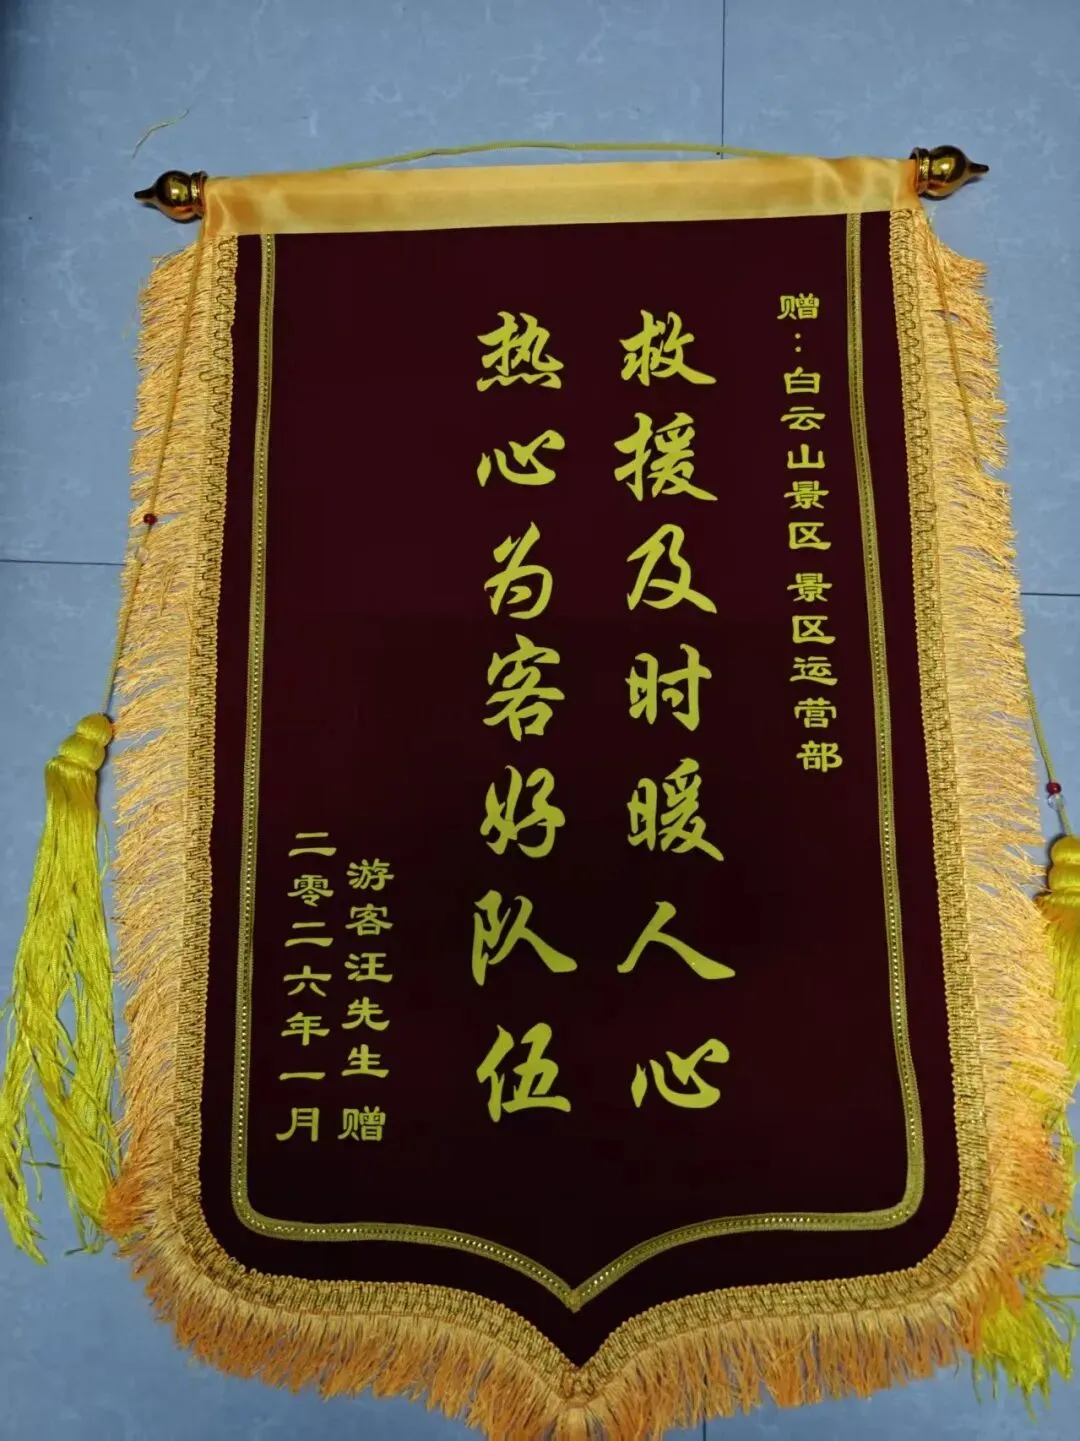 赠：白云山景区 景区运营部
救援及时暖人心
热心为客好队伍
游客汪先生 赠
二零二六年一月